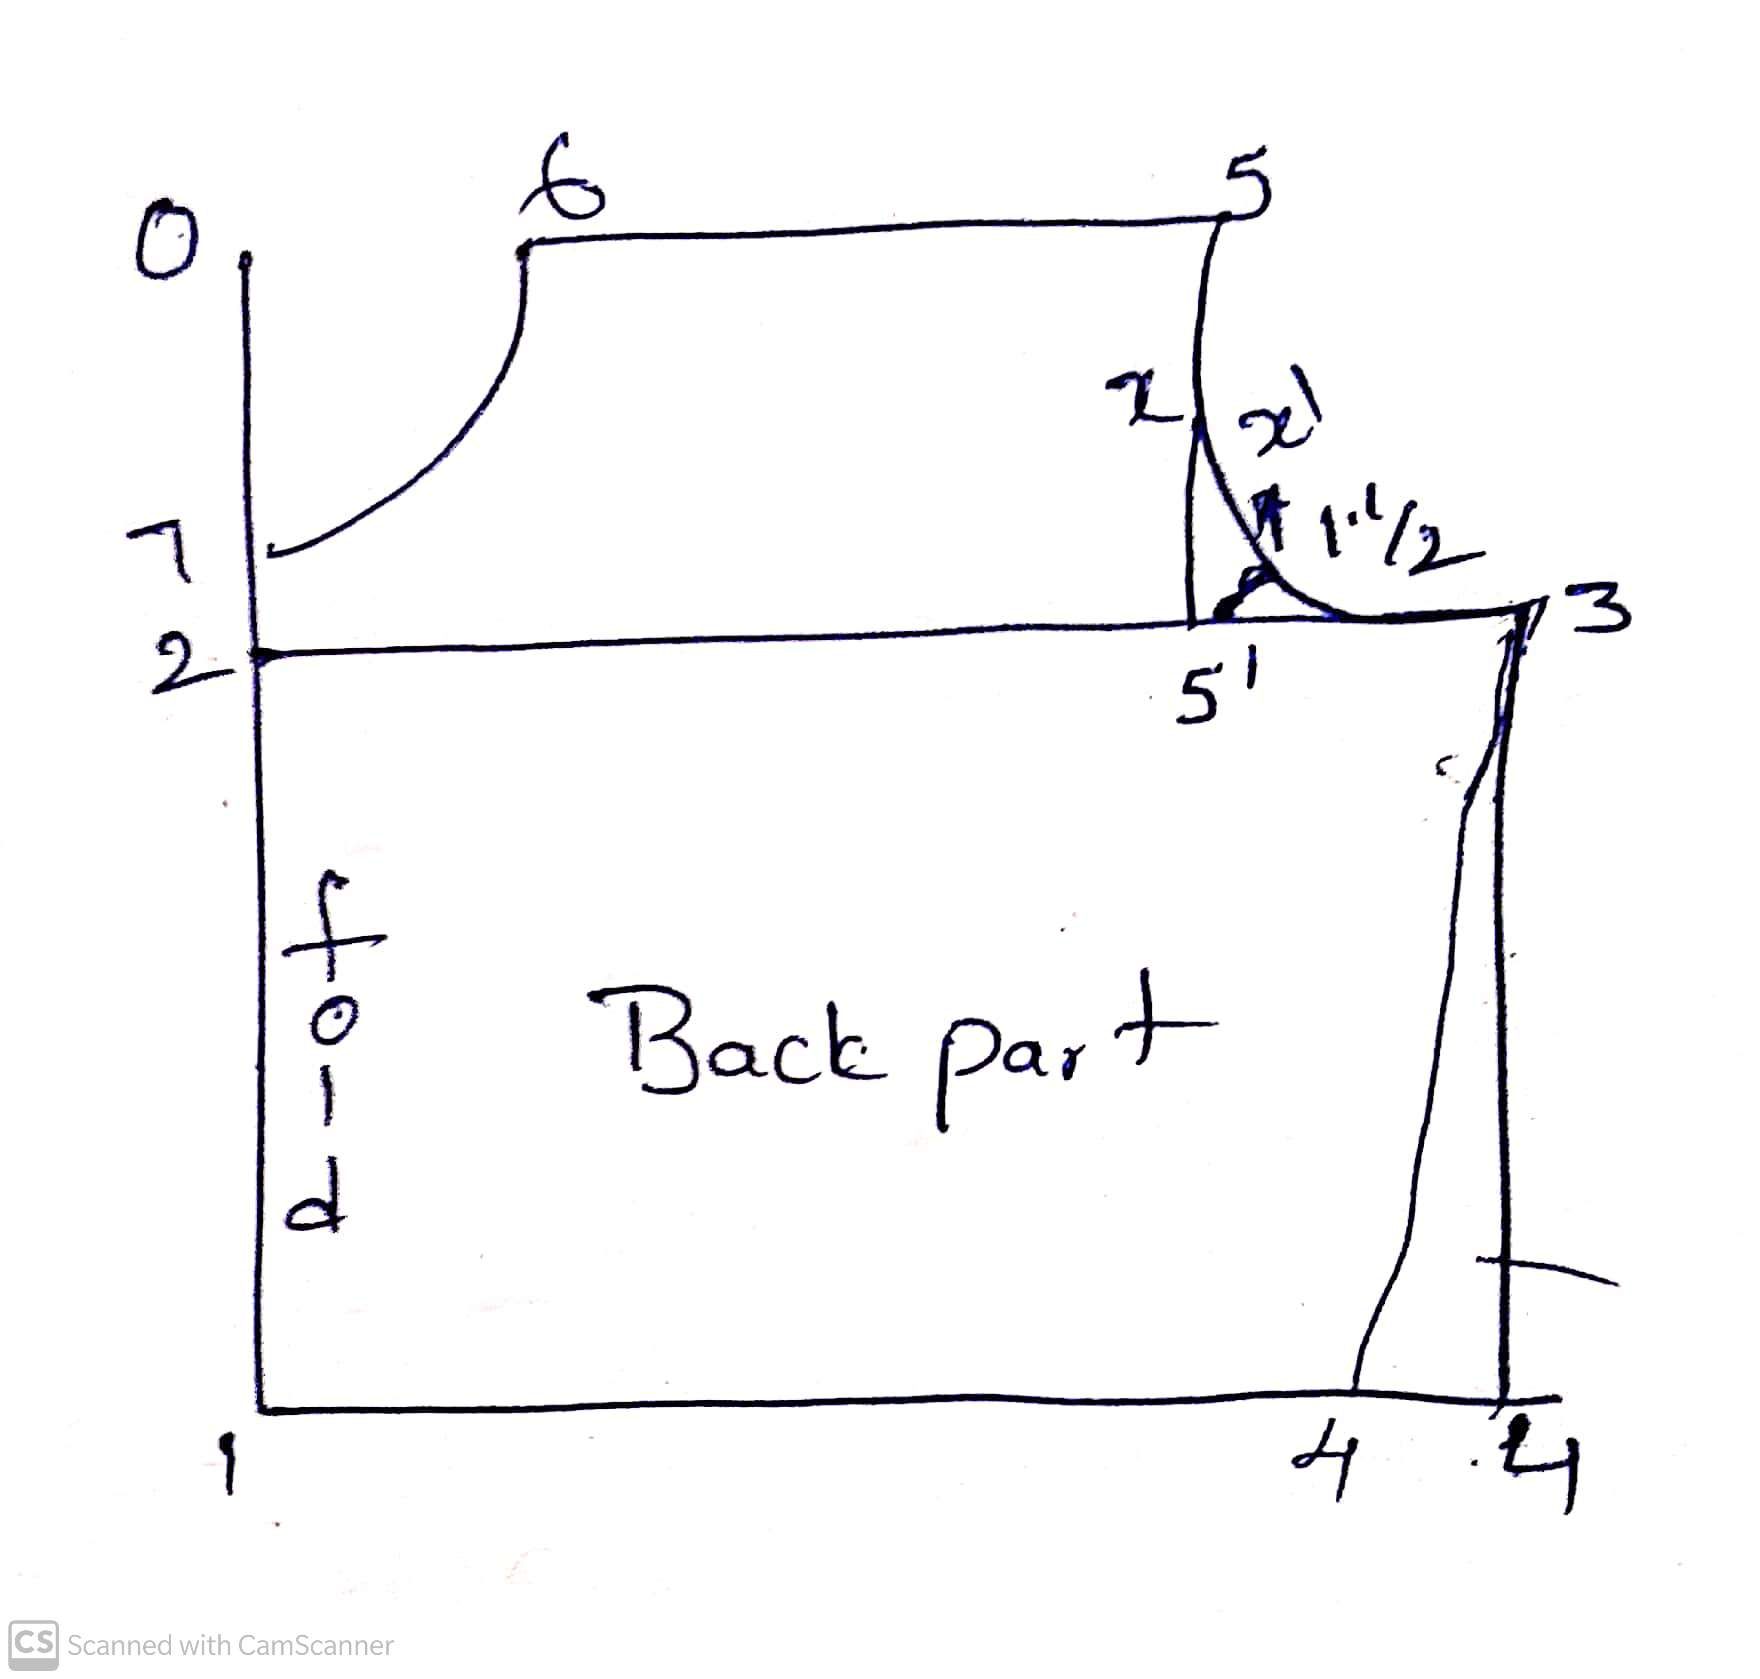 6
5
0
x
x'
1.1/2
7
3
2
5'
fold
Back part
1
4
4
CS Scanned with CamScanner